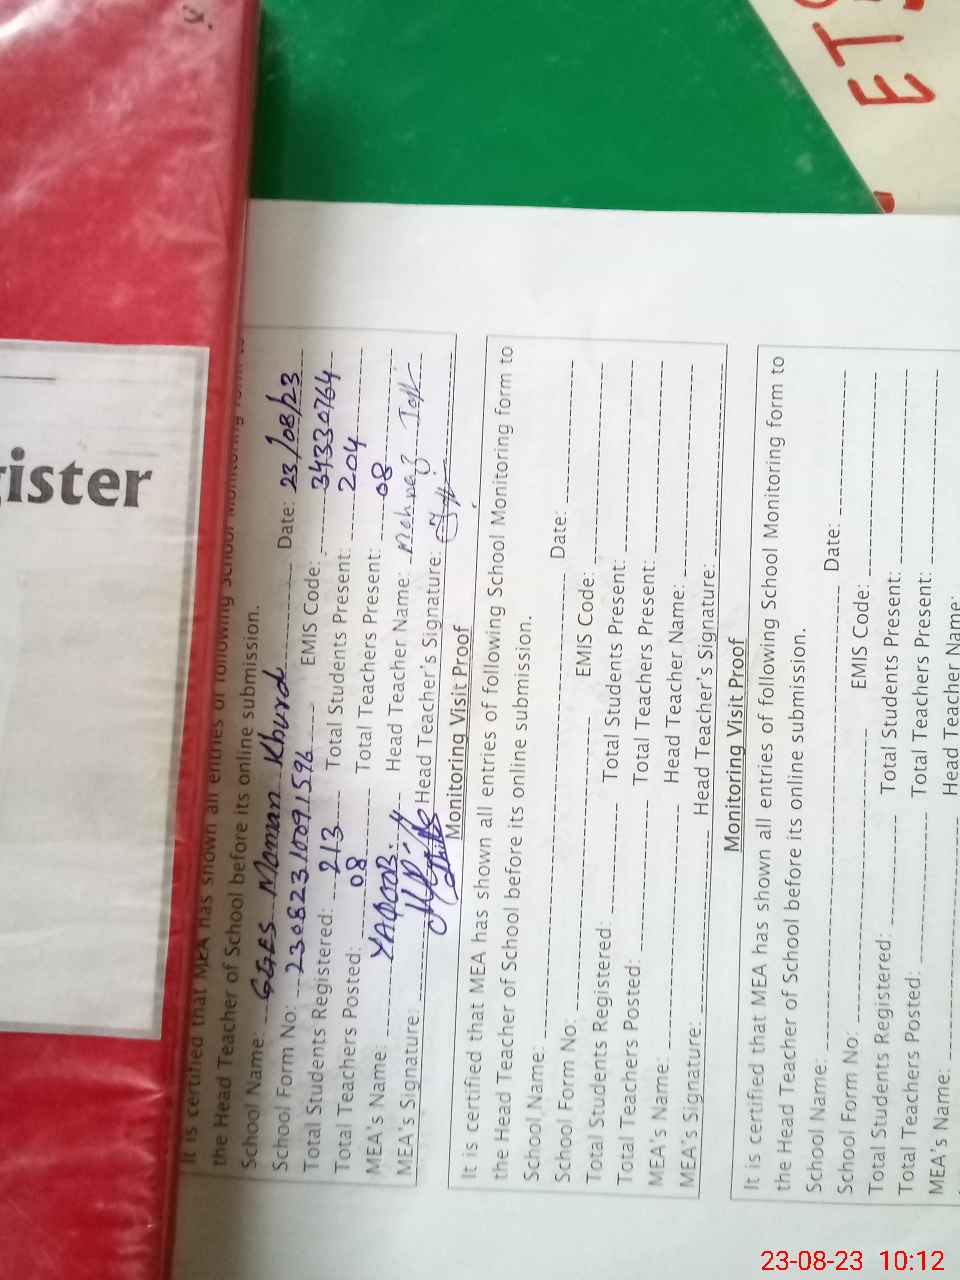 ister
ETS
It is certified that MEA has shown all entries of following School Monitoring form to
the Head Teacher of School before its online submission.
School Name: GGES Moman Khurd Date: 23/08/23
School Form No: 23082310091596 EMIS Code: 34330764
Total Students Registered: 213 Total Students Present: 204
Total Teachers Posted: 08 Total Teachers Present: 08
MEA's Name: YAQOOB Head Teacher Name: Mehnaz
MEA's Signature: Head Teacher's Signature:
Monitoring Visit Proof
It is certified that MEA has shown all entries of following School Monitoring form to
the Head Teacher of School before its online submission.
School Name: Date:
School Form No: EMIS Code:
Total Students Registered: Total Students Present:
Total Teachers Posted: Total Teachers Present:
MEA's Name: Head Teacher Name:
MEA's Signature: Head Teacher's Signature:
Monitoring Visit Proof
It is certified that MEA has shown all entries of following School Monitoring form to
the Head Teacher of School before its online submission.
School Name: Date:
School Form No: EMIS Code:
Total Students Registered: Total Students Present:
Total Teachers Posted: Total Teachers Present:
MEA's Name: Head Teacher Name:
23-08-23 10:12